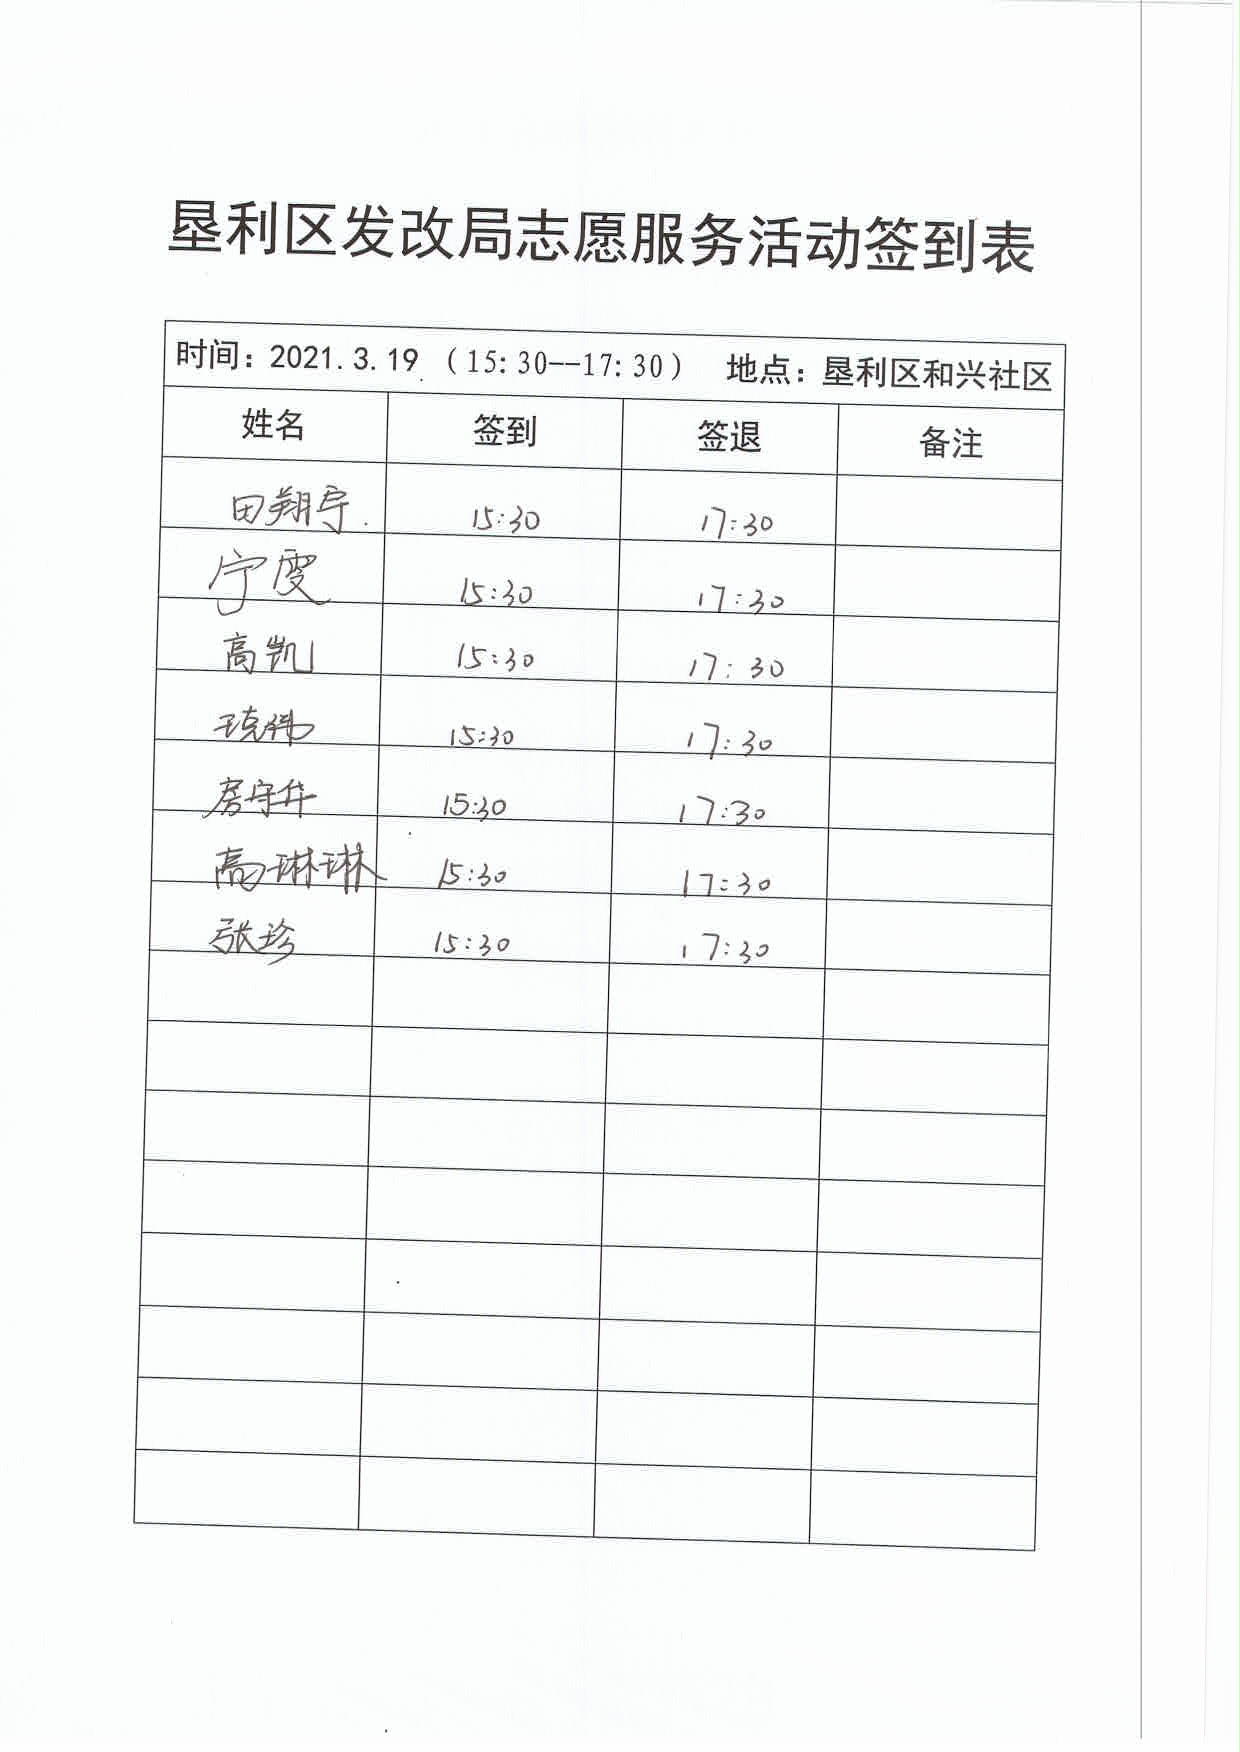 垦利区发改局志愿服务活动签到表
时间：2021.3.19 （15:30--17:30） 地点：垦利区和兴社区
姓名 签到 签退 备注
田翔宇 15:30 17:30
宁雯 15:30 17:30
高凯 15:30 17:30
王克伟 15:30 17:30
房守华 15:30 17:30
高琳琳 15:30 17:30
张珍 15:30 17:30